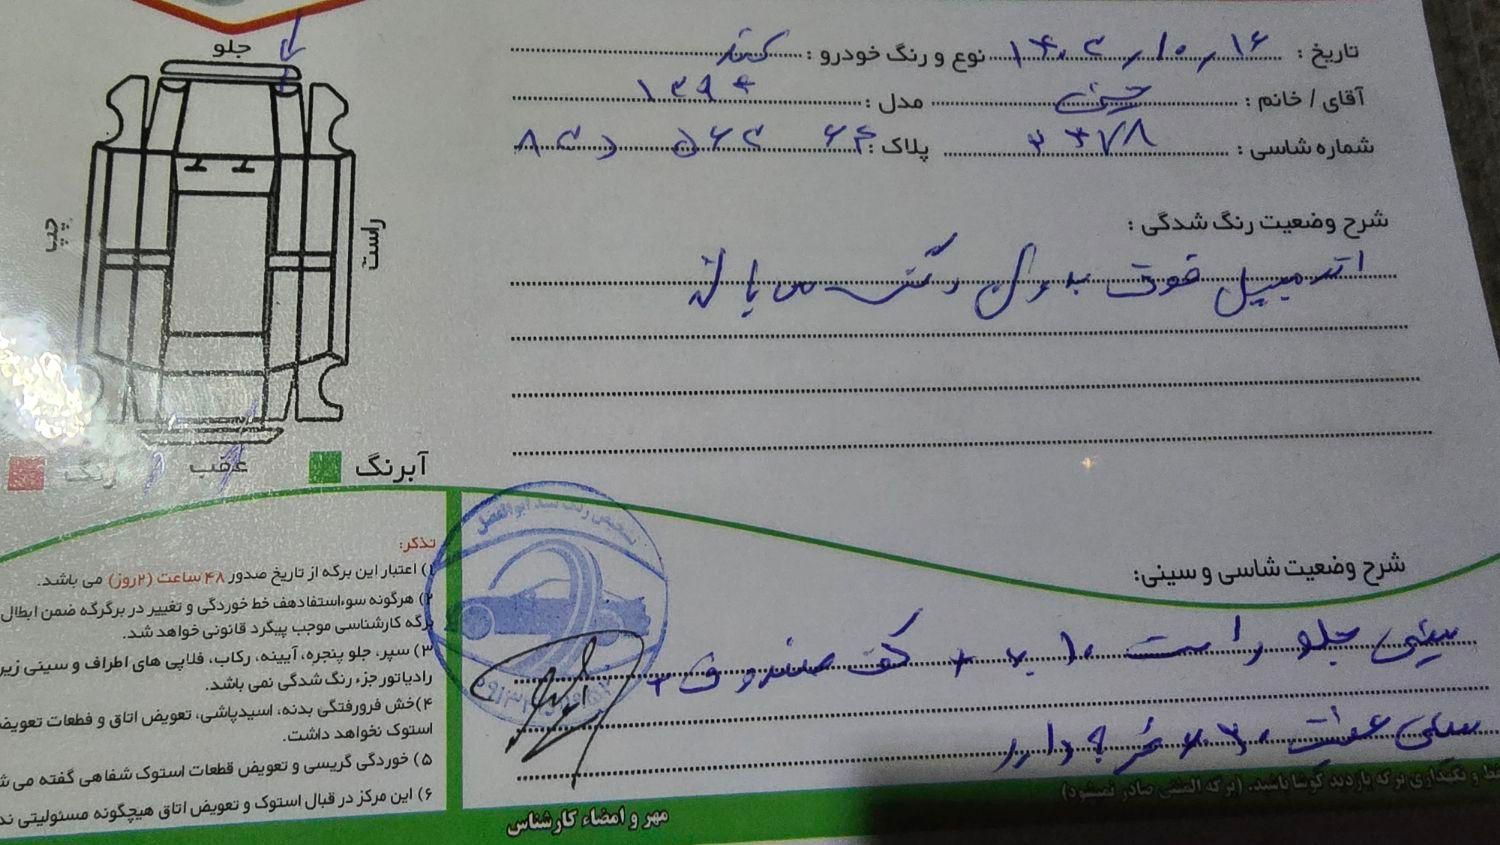 تاریخ : ۱۴۰۲,۱۰,۱۶ نوع و رنگ خودرو :
آقای / خانم : مدل :
شماره شاسی : پلاک :
شرح وضعیت رنگ شدگی :
اتومبیل فوق بدون رنگ می باشد
شرح وضعیت شاسی و سینی:
سینی جلو راست ۱۰ + کف صندوق +
سینی عقب
جلو
چپ
راست
عقب
آبرنگ
رنگ
تذکر:
۱) اعتبار این برگه از تاریخ صدور ۴۸ ساعت (۲روز) می باشد.
۲) هرگونه سوءاستفادهف خط خوردگی و تغییر در برگرگه ضمن ابطال
برگه کارشناسی موجب پیگرد قانونی خواهد شد.
۳) سپر، جلو پنجره، آیینه، رکاب، فلاپی های اطراف و سینی زیر
رادیاتور جزء رنگ شدگی نمی باشد.
۴)خش فرورفتگی بدنه، اسیدپاشی، تعویض اتاق و قطعات تعویض
استوک نخواهد داشت.
۵) خوردگی گریسی و تعویض قطعات استوک شفاهی گفته می ش
۶) این مرکز در قبال استوک و تعویض اتاق هیچگونه مسئولیتی ند
تشخیص رنگ سید ابوالفضل
مهر و امضاء کارشناس
و نگهداری برگه بازدید کوشا باشید. (برگه المثنی صادر نمیشود)